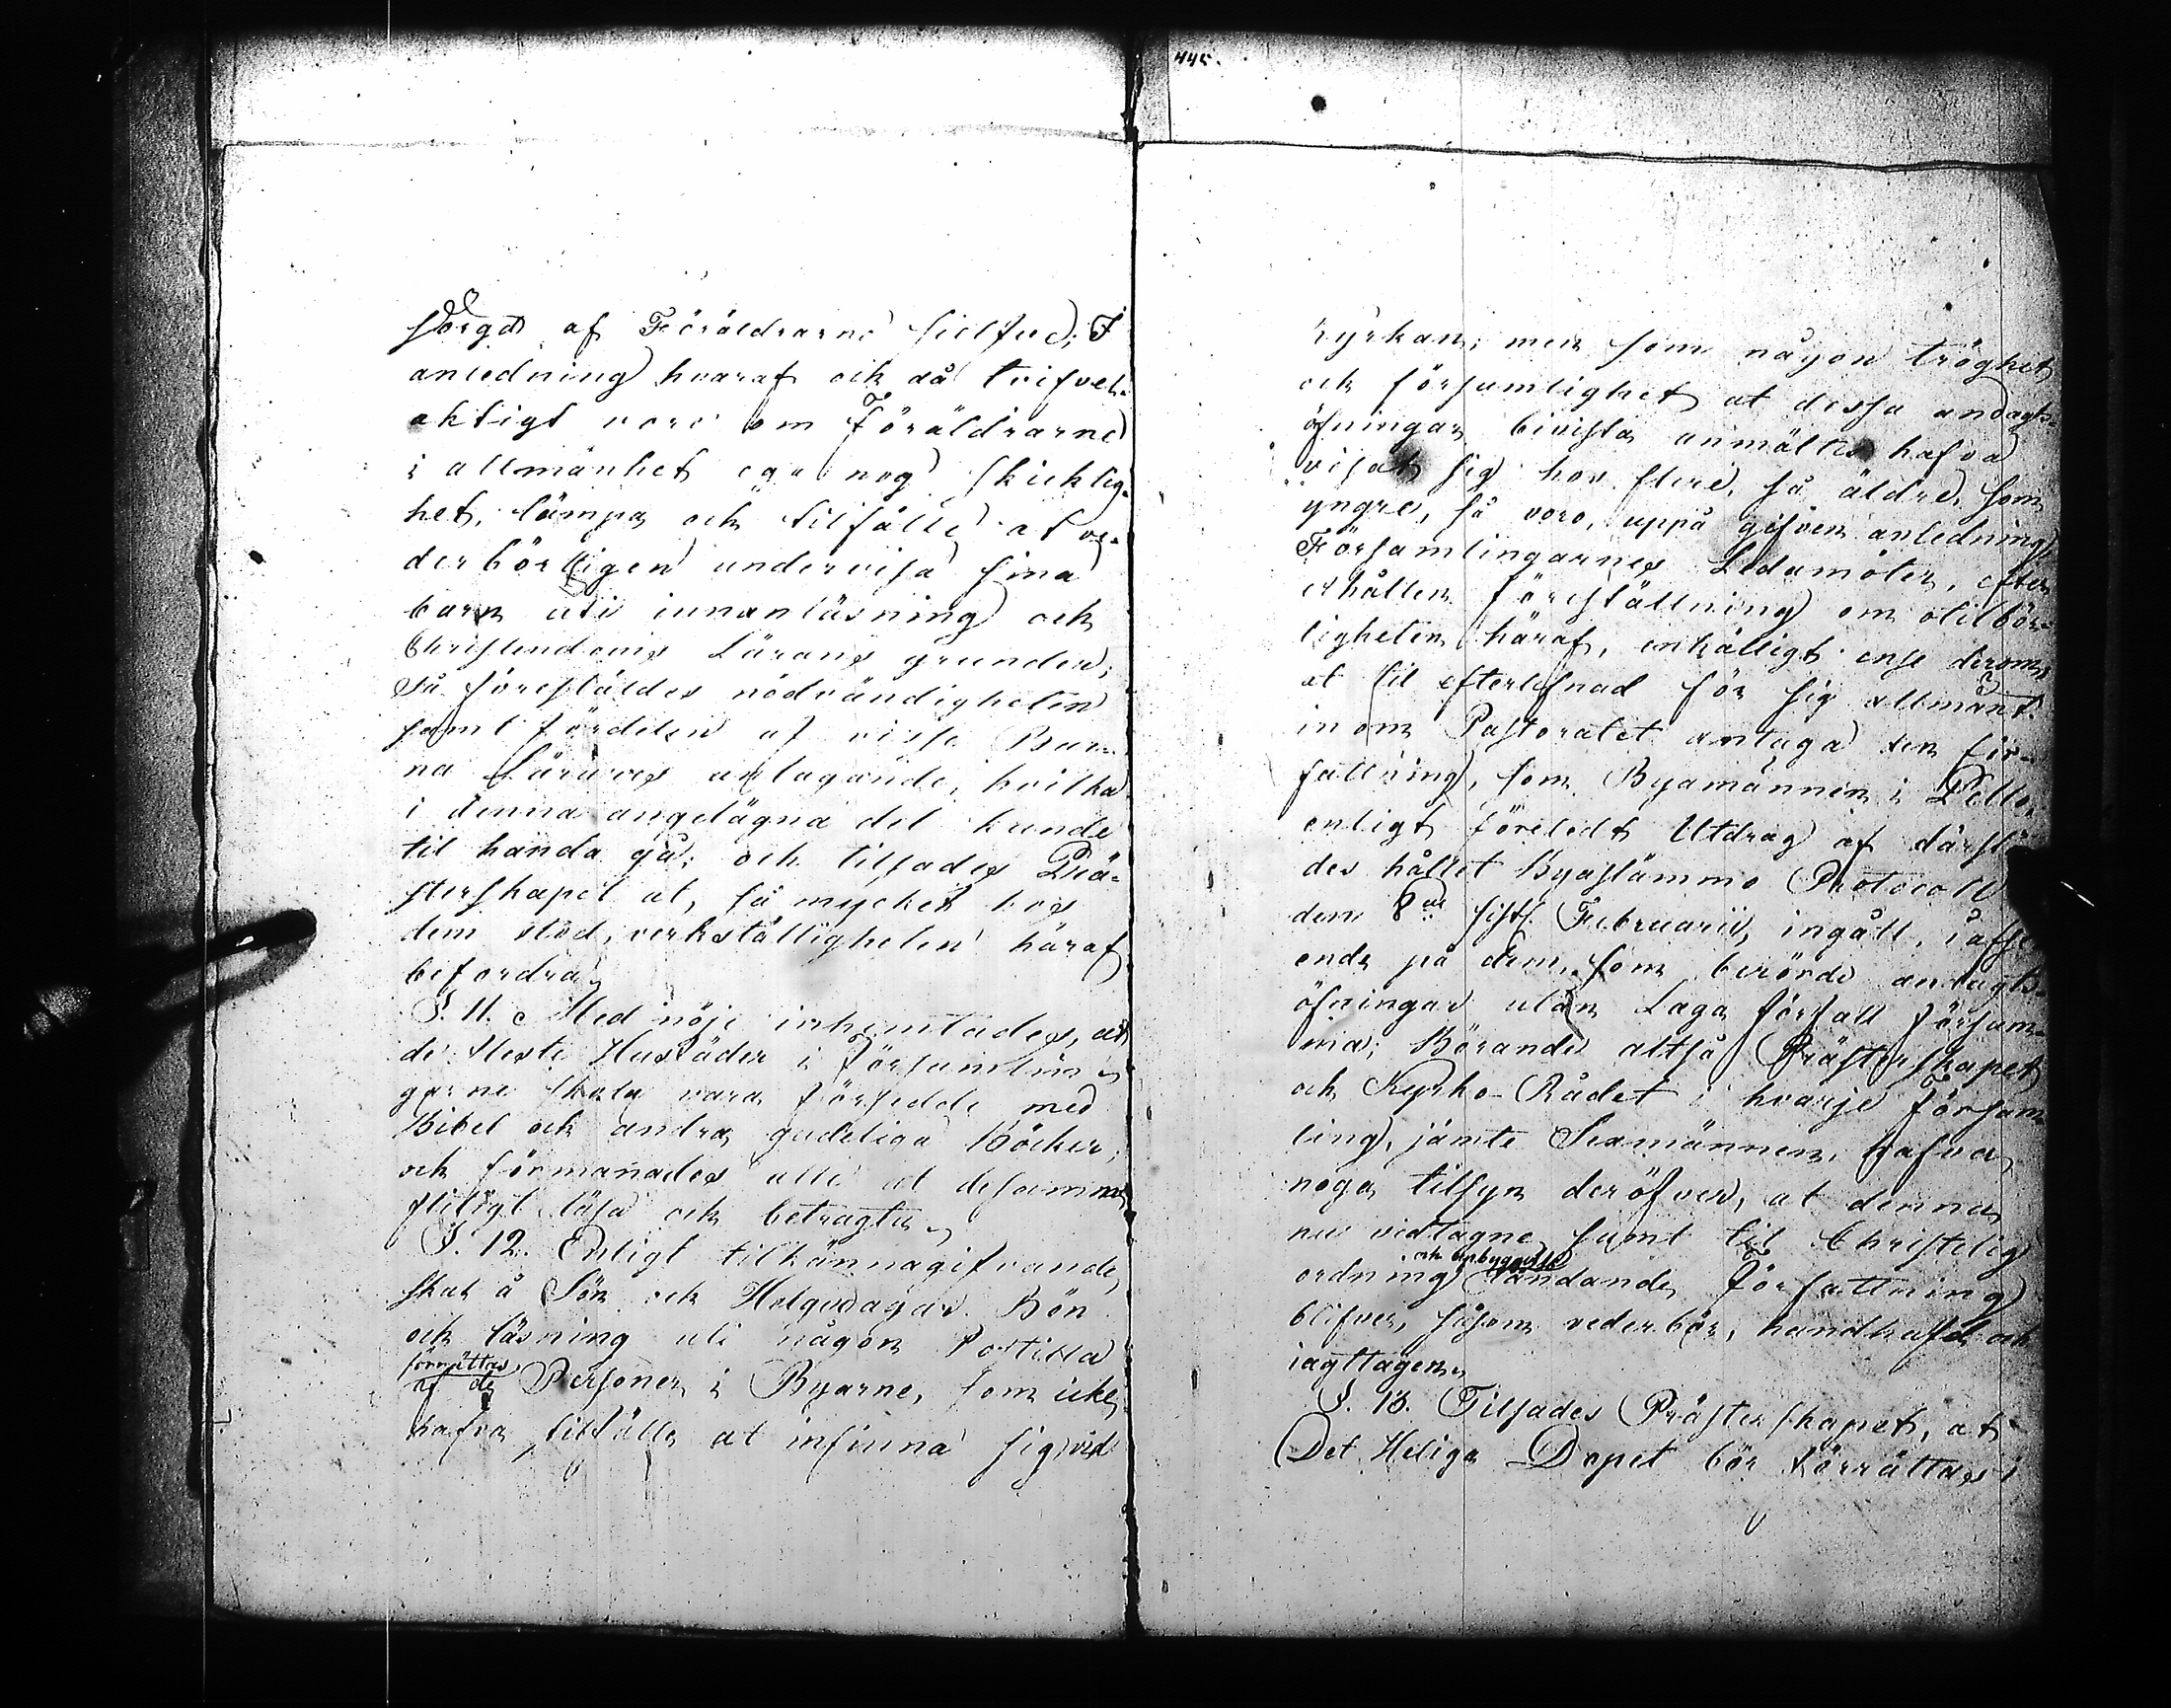 sörgdt af Föräldrarne sielfve; I
anledning hvaraf och då tvifvel-
aktigt vore om Föräldrarne
i allmänhet ega nog skicklig-
het, lämpa och tilfälle at ve-
derbörligen undervisa sina
barn uti innanläsning och
Christendoms Lärans grunder;
Så föreställdes nödvändigheten
samt fördelen af visse Bar-
na Lärares antagande, hvilka
i denna angelägna del kunde
til handa gå; och tilsades Prä-
sterskapet at, så mycket hos
dem stod, verkställigheten häraf
befordra.
§. 11. Med nöje inhemtades, at
de fleste Husfäder i Församlin-
garne skola vara försedde med
Bibel och andra gudeliga Böcker;
och förmanades alle at desamma
flitigt läsa och betragta.
§. 12. Enligt tilkännagifvande
skal å Sön och Helgedagar Bön
och läsning uti någon Postilla
förrättas
af de Personer i Byarne, som icke
hafva tilfälle at infinna sig vid
445.
kyrkan; men som någon tröghet
och försumlighet at dessa andagts-
öfningar bivista anmältes hafva
visat sig hos flere, så äldre, som
yngre, så voro, uppå gifven anledning,
Församlingarnes Ledamöter, efter
erhållen föreställning om otilbör-
ligheten häraf, enhälligt ense derom,
at til efterlefnad för sig allmänt
inom Pastoratet antaga den för-
fattning, som Byamännen i Pello,
enligt föreledt Utdrag af därstä-
des hållet Byastämmo Protocoll
den 8de sistl. Februarii, ingått, i afse-
ende på dem, som berörde andagts-
öfningar utan Laga förfall försum-
ma; Börande altså Prästerskapet
och Kyrko-Rådet i hvarje Försam-
ling, jämte Sexmännen, hafva
noga tilsyn deröfver, at denna
nu vidtagne samt til Christelig
och uppbyggelse
ordning ländande Författning
blifver, såsom vederbör, handhafd och
iagttagen.
§. 13. Tilsades Prästerskapet, at
Det Heliga Dopet bör förrättas i